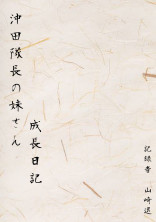 沖田隊長の妹さん
成長日記
記録者 山崎退